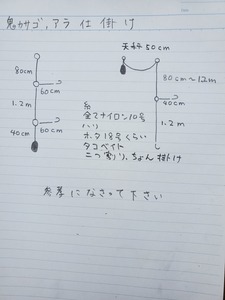 鬼カサゴ,アラ仕掛け
天秤50cm
80cm
60cm
1.2m
60cm
40cm
80cm〜1.2m
40cm
1.2m
糸
全てナイロン10号
ハリ
ホタ18号くらい
タコベイト
二つ割り,ちょん掛け
参考になさって下さい